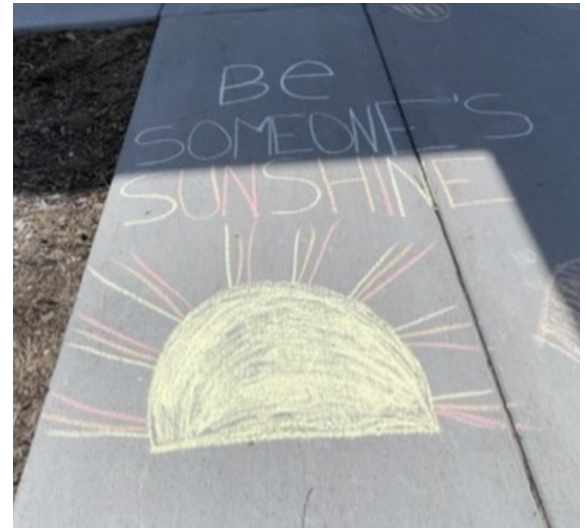 Be
SOMEONE'S
SUNSHINE